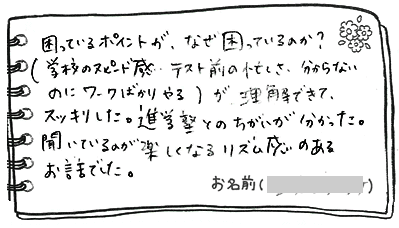 困っているポイントが、なぜ困っているのか?
(学校のスピード感・テスト前の忙しさ、分からない
のにワークばかりやる)が理解できて、
スッキリした。進学塾とのちがいが分かった。
聞いているのが楽しくなるリズム感のある
お話でした。
お名前( )